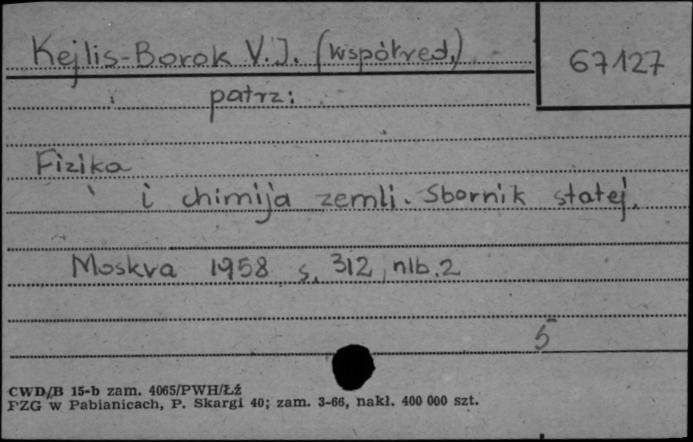 Kejlis-Borok V.J. (współred.)
67127
patrz:
Fizika
i chimija zemli. Sbornik statej.
Moskva 1958 s. 312, nlb. 2
5
CWD/B 15-b zam. 4065/PWH/Łź
PZG w Pabianicach, P. Skargi 40; zam. 3-66, nakł. 400 000 szt.